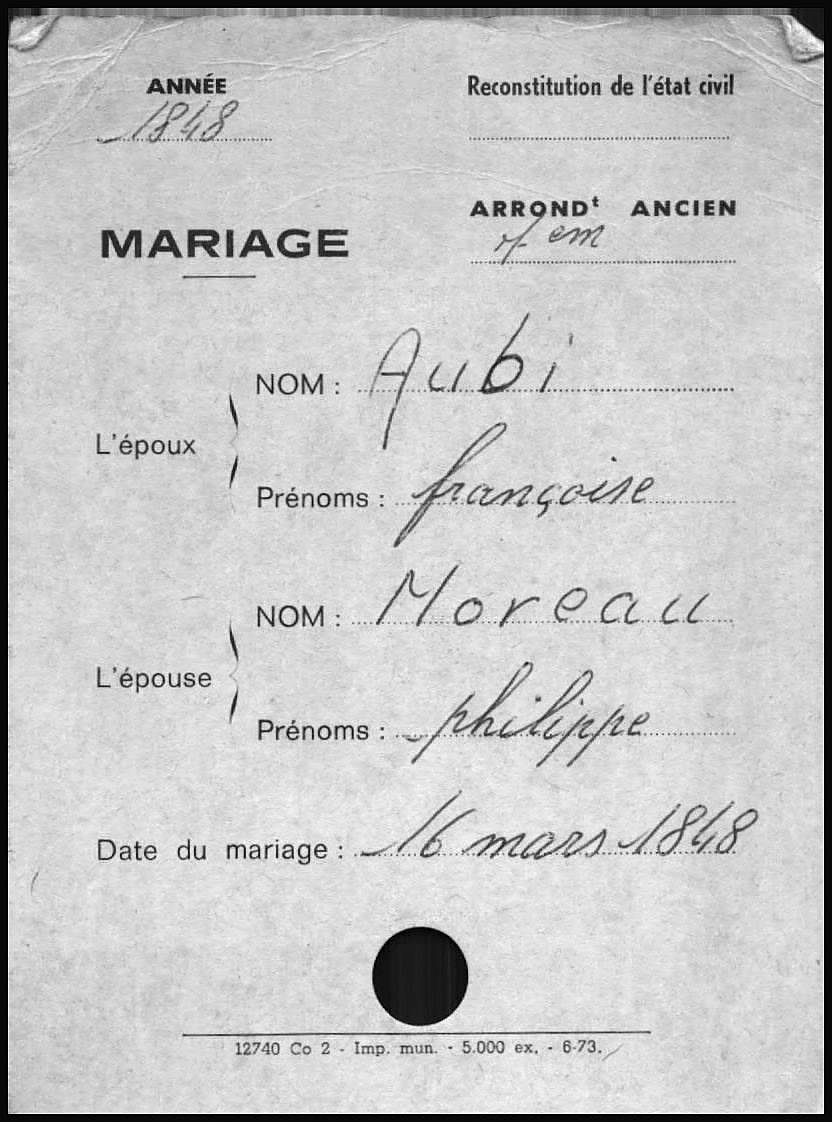 ANNÉE
1848
Reconstitution de l'état civil
ARRONDt ANCIEN
em
MARIAGE
L'époux
NOM : Aubi
Prénoms : françoise
L'épouse
NOM : Moreau
Prénoms : philippe
Date du mariage : 16 mars 1848
12740 Co 2 - Imp. mun. - 5.000 ex. - 6-73.